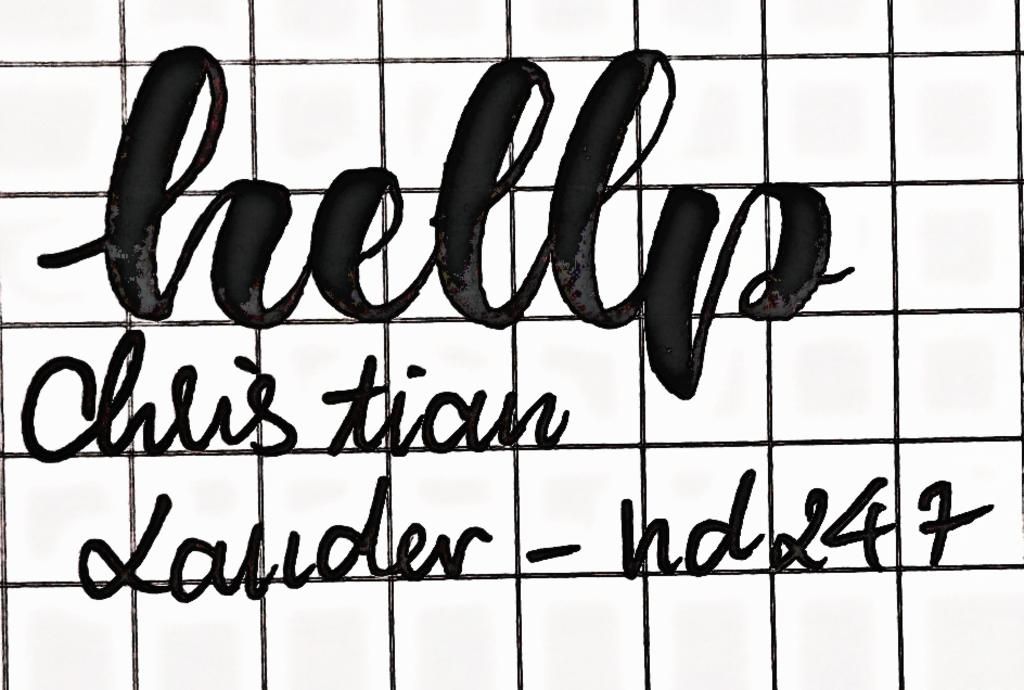 hellp
Christian
Lauder - hd247